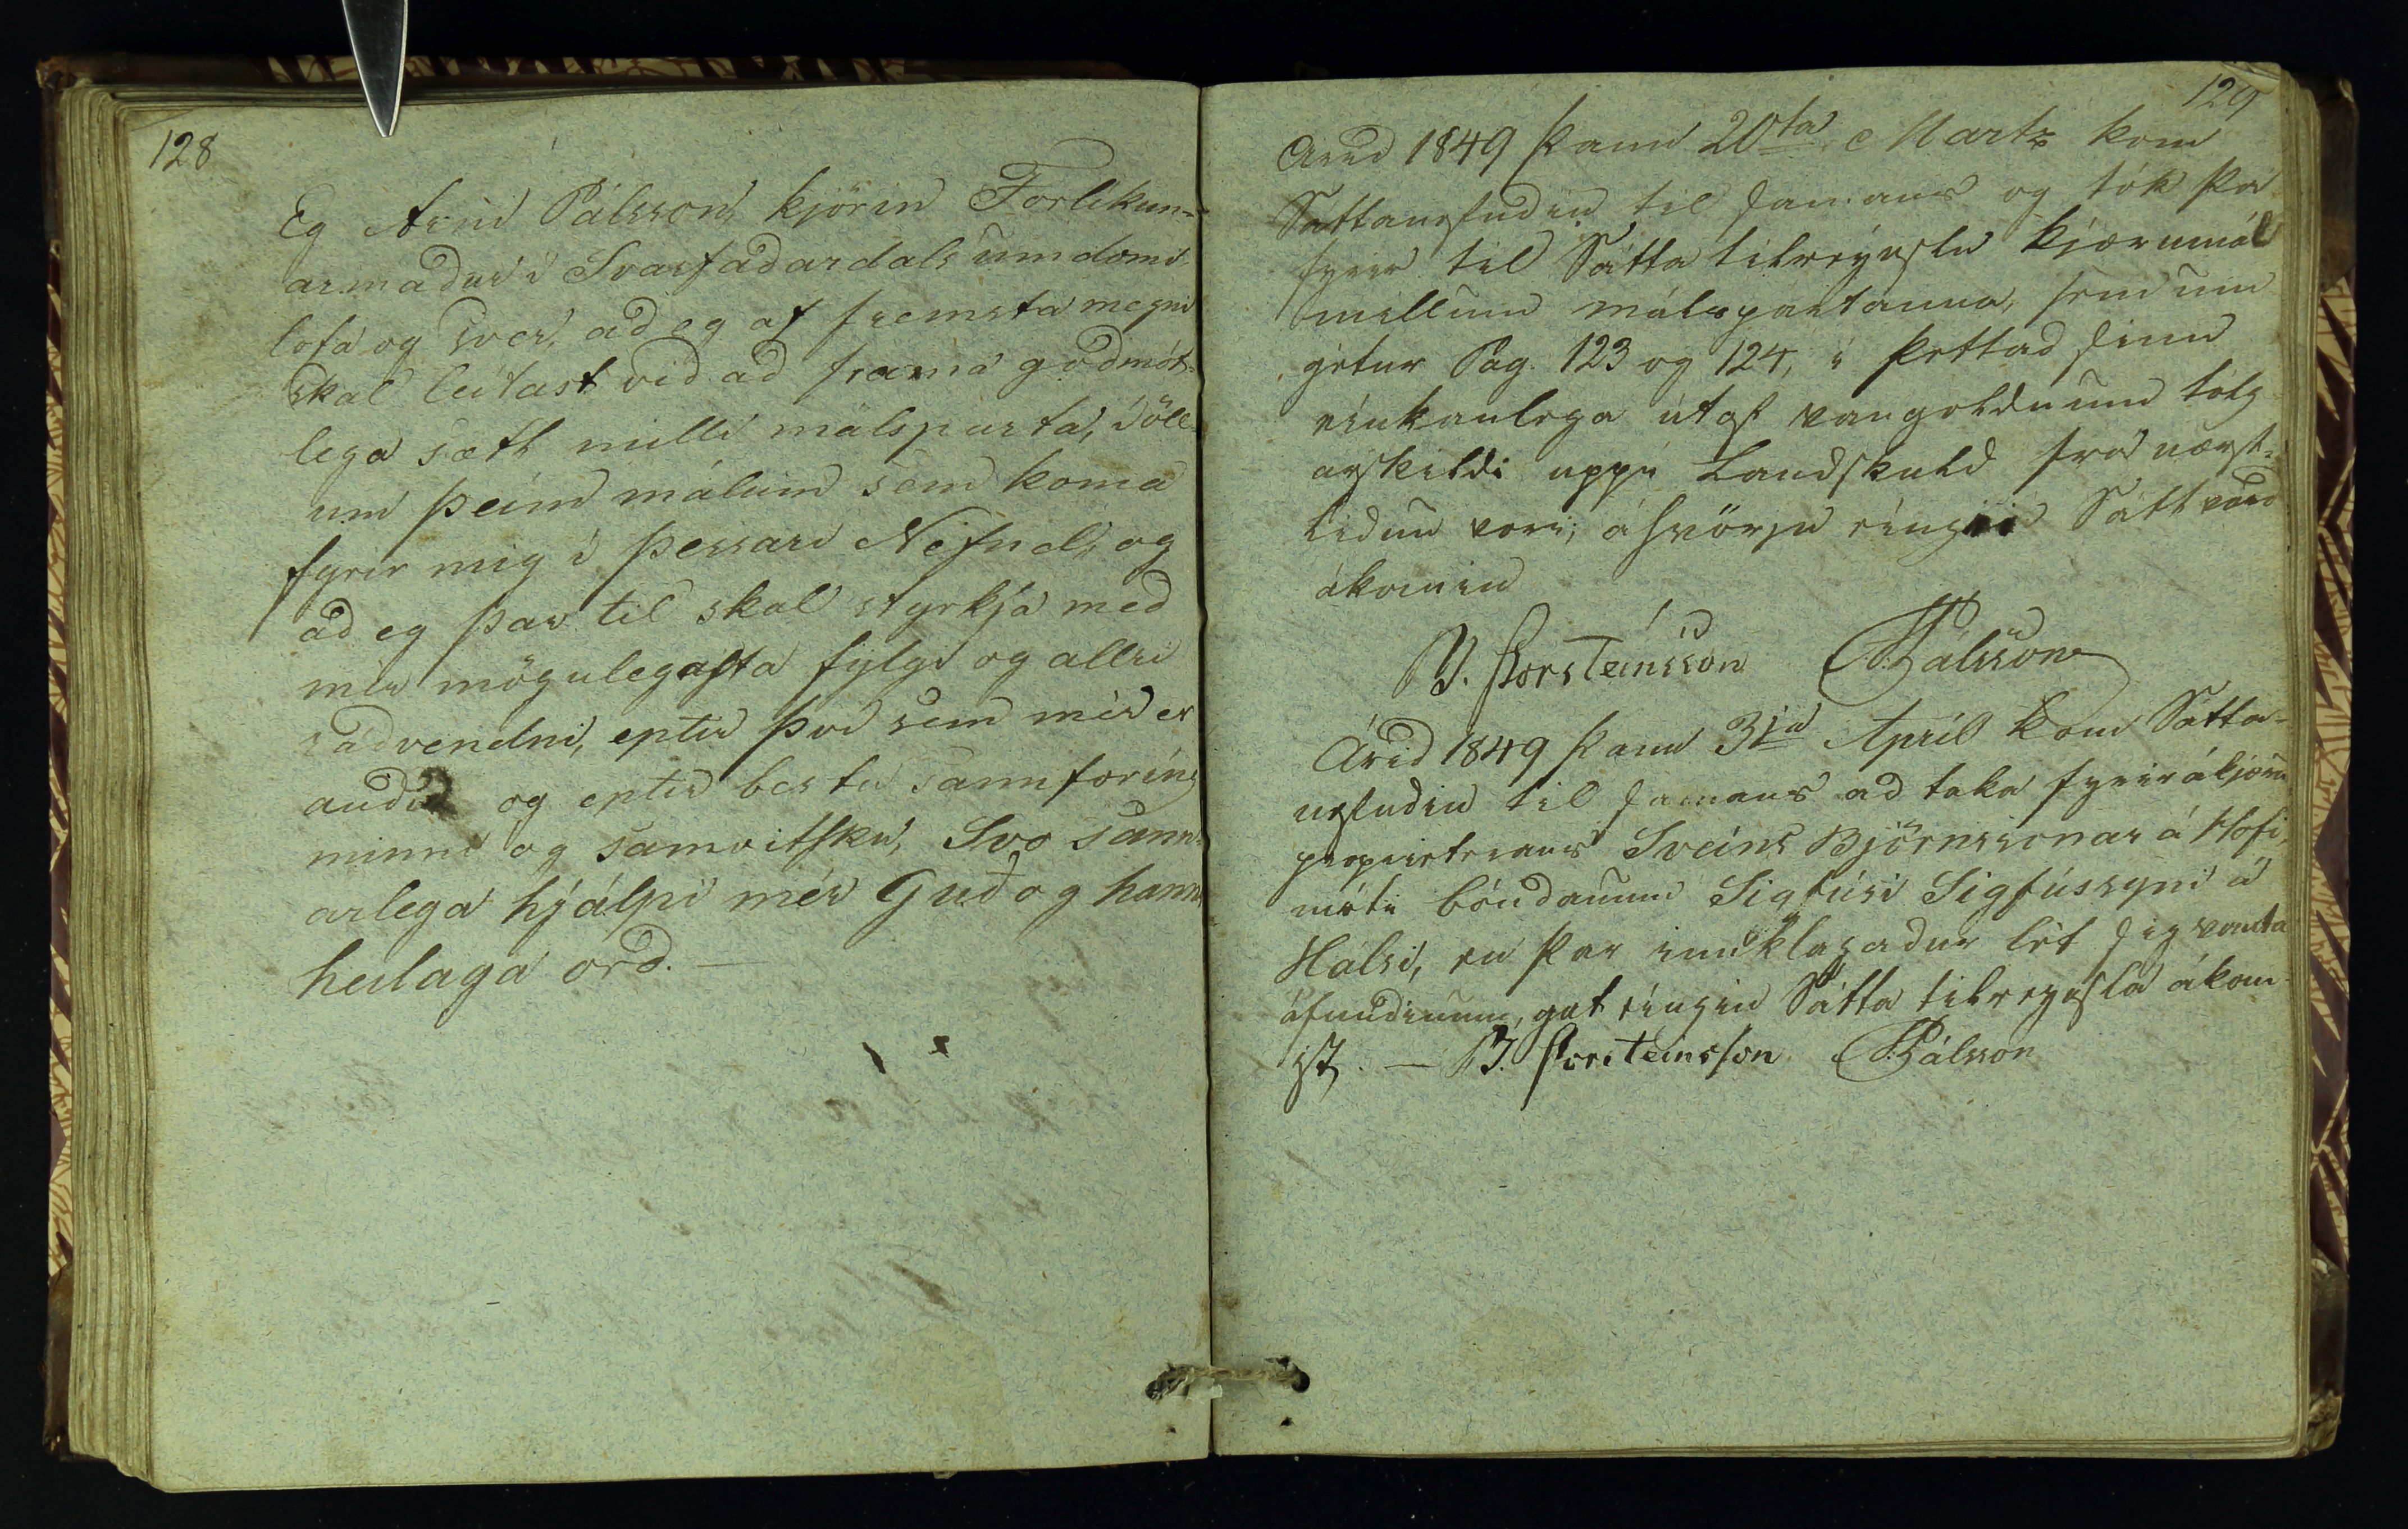 128
Eg Arni Pálsson, kjörin Forlikun-
armadur i Svarfadardals umdømi
lofa og sver, ad eg af fremsta megni
skal leitast vid ad fremia godmót-
lega sætt milli málsparta, i öll-
um þeim málum sem koma
fyrir mig i þessari Nefnd, og
ad eg þar til skal styrkja med
mér mögulegasta fylgi og allri
rádvendni, eptir þvi sem mér er
audid og eptir bestu sannfæríng
minni og samvitsku, Svo sann-
arlega hjálpi mér Guð og hanns
heilaga ord. —
129
Arid 1849 þann 20ta Marts kom
Sáttanefndin til samans og tók þa
fyrir til Sátta tilreynslu kjærumál
millum málspartanna, sem um
getur Pag. 123 og 124, i þettad sinn
einkanlega útaf vangoldnum tólg
arskildi uppi Landskuld frá næst-
lidnu vori; á hvörju eingin Sátt vard
ákomin
Þ. Þorsteinsson APálsson
Árid 1849 þann 3ja Apríl kom Sátta-
nefndin til samans ad taka fyrir ákjæru
proprietairs Sveins Björnssonar á Hofi,
móti bóndanum Sigfúsi Sigfússyni á
Hálsi, en þar innklagadur lét sig vanta
áfundinum, gat eingin Sátta tilreynsla ákom-
ist. — Þ. Þorsteinsson APálsson